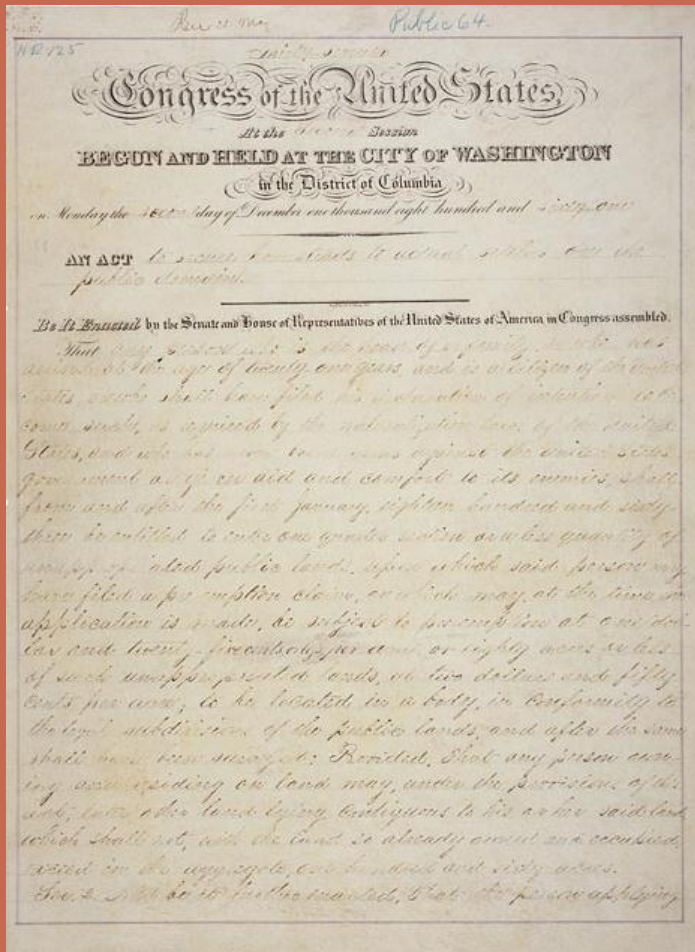 Public 64.
HR 125
Thirty-seventh
Congress of the United States,
At the Second Session
BEGUN AND HELD AT THE CITY OF WASHINGTON
in the District of Columbia
on Monday the second day of December one thousand eight hundred and sixty-one
AN ACT to secure homesteads to actual settlers on the
public domain.
Be It Enacted by the Senate and House of Representatives of the United States of America in Congress assembled,
That any person who is the head of a family, or who has
arrived at the age of twenty one years, and is a citizen of the United
States, or who shall have filed his declaration of intention to be-
come such, as required by the naturalization laws of the United
States, and who has never borne arms against the United States
government or given aid and comfort to its enemies, shall
from and after the first January, eighteen hundred and sixty-
three be entitled to enter one quarter section or a less quantity of
unappropriated public lands, upon which said person may
have filed a preemption claim, or which may, at the time the
application is made, be subject to preemption at one dol-
lar and twenty-five cents, or less, per acre, or eighty acres or less
of such unappropriated lands, at two dollars and fifty
cents per acre, to be located in a body, in conformity to
the legal subdivisions of the public lands, and after the same
shall have been surveyed: Provided, That any person own-
ing and residing on land may, under the provisions of this
act, enter other land lying contiguous to his or her said land,
which shall not, with the land so already owned and occupied,
exceed in the aggregate, one hundred and sixty acres.
Sec. 2. And be it further enacted, That the person applying